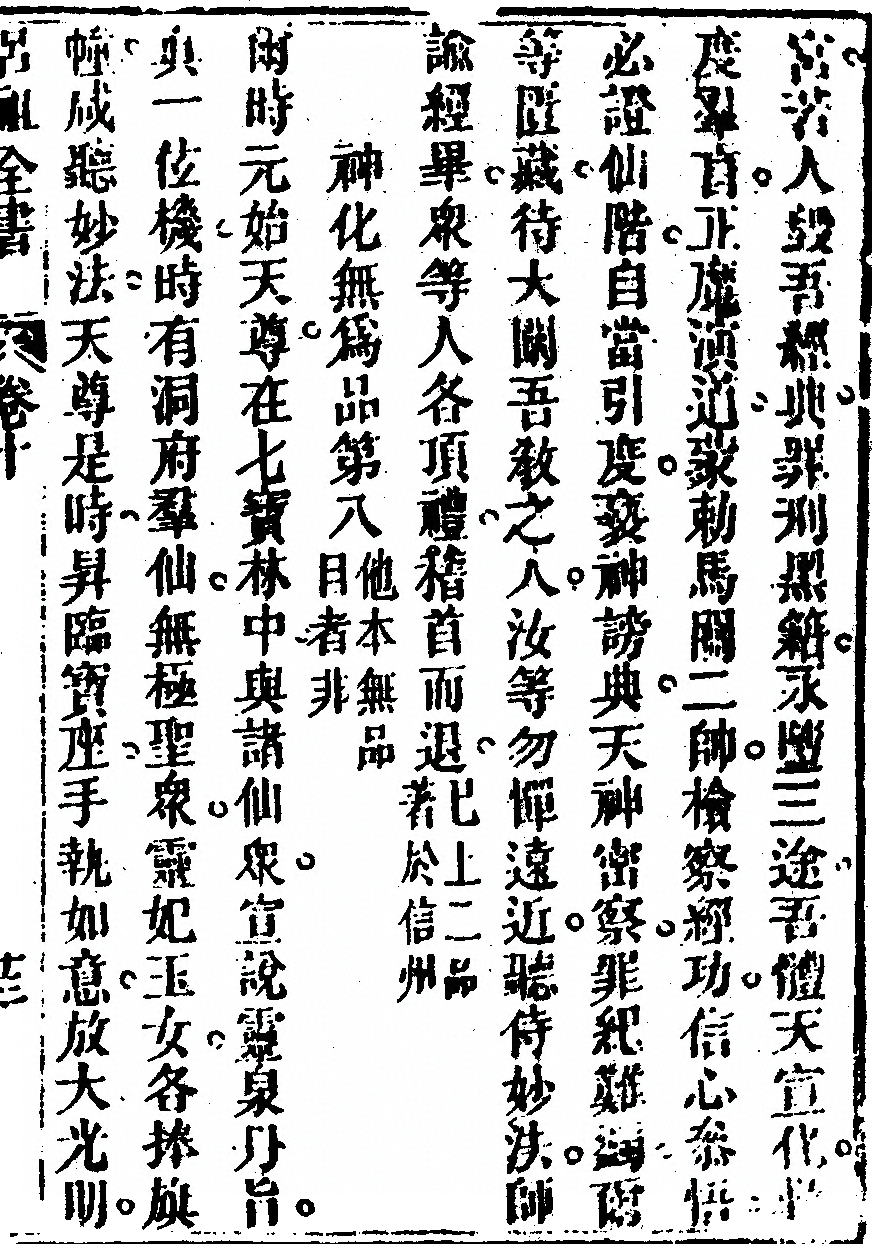 宮若人毀吾經典罪列黑籍永墮三途吾體天宣化
度羣盲正虛演道敬勅馬關二帥檢察經功信心叅悟
必證仙階自當引度褻神謗典天神密察罪紀難逭爾
等匿藏待大闡吾敎之人汝等勿憚遠近聽侍妙法師
諭經畢衆等人各頂禮稽首而退已上二品著於信州
神化無爲品第八他本無品目者非
爾時元始天尊在七寶林中與諸仙衆宣說靈泉丹旨
與一位機時有洞府羣仙無極聖衆靈妃玉女各捧旗
幢咸聽妙法天尊是時昇臨寶座手執如意放大光明
呂祖全書 卷十 廿三